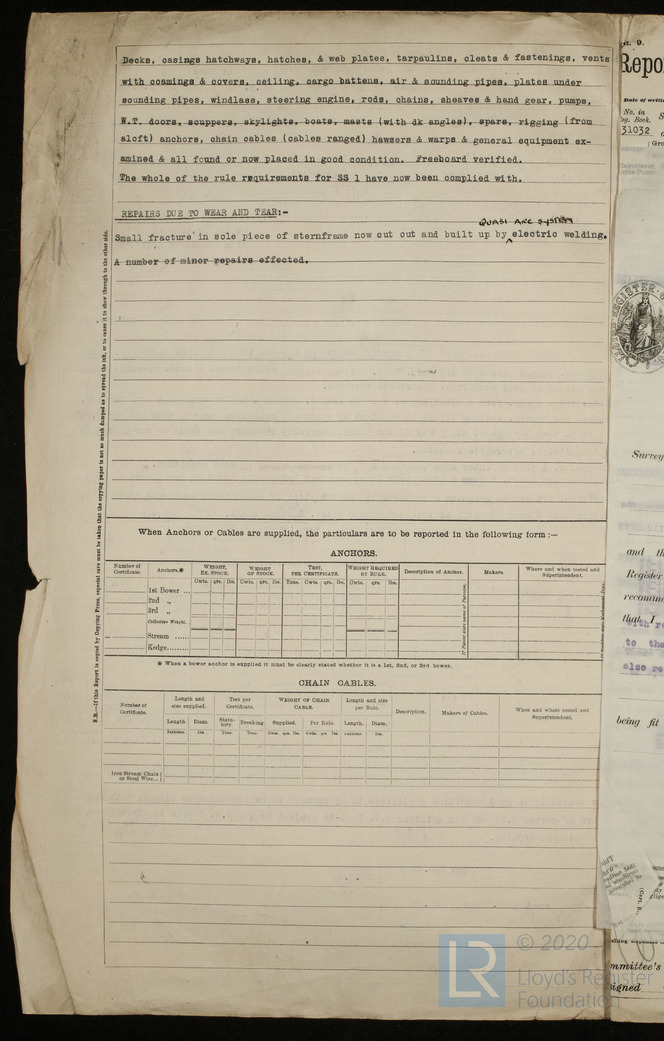 Decks, casings hatchways, hatches, & web plates, tarpaulins, cleats & fastenings, vents
with coamings & covers, ceiling, cargo battens, air & sounding pipes, plates under
sounding pipes, windlass, steering engine, rods, chains, sheaves & hand gear, pumps,
W.T. doors, scuppers, skylights, boats, masts (with dk angles), spars, rigging (from
aloft) anchors, chain cables (cables ranged) hawsers & warps & general equipment ex-
amined & all found or now placed in good condition. Freeboard verified.
The whole of the rule requirements for SS 1 have now been complied with.
REPAIRS DUE TO WEAR AND TEAR:-
QUASI ARC SYSTEM
Small fracture in sole piece of sternframe now cut out and built up by electric welding.
A number of minor repairs effected.
N.B.—If this Report is copied by Copying Press, especial care must be taken that the copying paper is not so much damped as to spread the ink, or to cause it to show through to the other side.
When Anchors or Cables are supplied, the particulars are to be reported in the following form :—
ANCHORS.
Number of Certificate. Anchors.* WEIGHT, EX. STOCK. WEIGHT OF STOCK. TEST, PER CERTIFICATE. WEIGHT REQUIRED BY RULE. Description of Anchor. Makers. Where and when tested and Superintendent.
Cwts. qrs. lbs. Cwts. qrs. lbs. Tons. Cwts. qrs. lbs. Cwts. qrs. lbs.
1st Bower ...
2nd „
3rd „
Collective Weight.
Stream ......
Kedge........
* When a bower anchor is supplied it must be clearly stated whether it is a 1st, 2nd, or 3rd bower.
CHAIN CABLES.
Number of Certificate. Length and size supplied. Test per Certificate. WEIGHT OF CHAIN CABLE. Length and size per Rule. Description. Makers of Cables. When and where tested and Superintendent.
Length Diam. Statutory Breaking Supplied. Per Rule Length. Diam.
Fathoms. Ins. Tons. Tons Cwts. qrs. lbs. Cwts. qrs. lbs. Fathoms Ins.
Iron Stream Chain or Steel Wire...
Repo
Date of writi
No. in
Reg. Book.
31032
(Gro
LLOYD'S REGISTER
Survey
and th
Register
recomme
that I
with re
to the
also re
being fit
mmittee's
signed
LR
© 2020
Lloyd's Register
Foundation